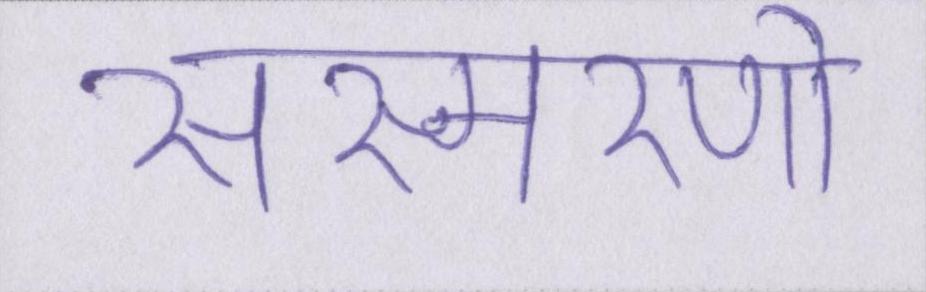 सस्मरणो